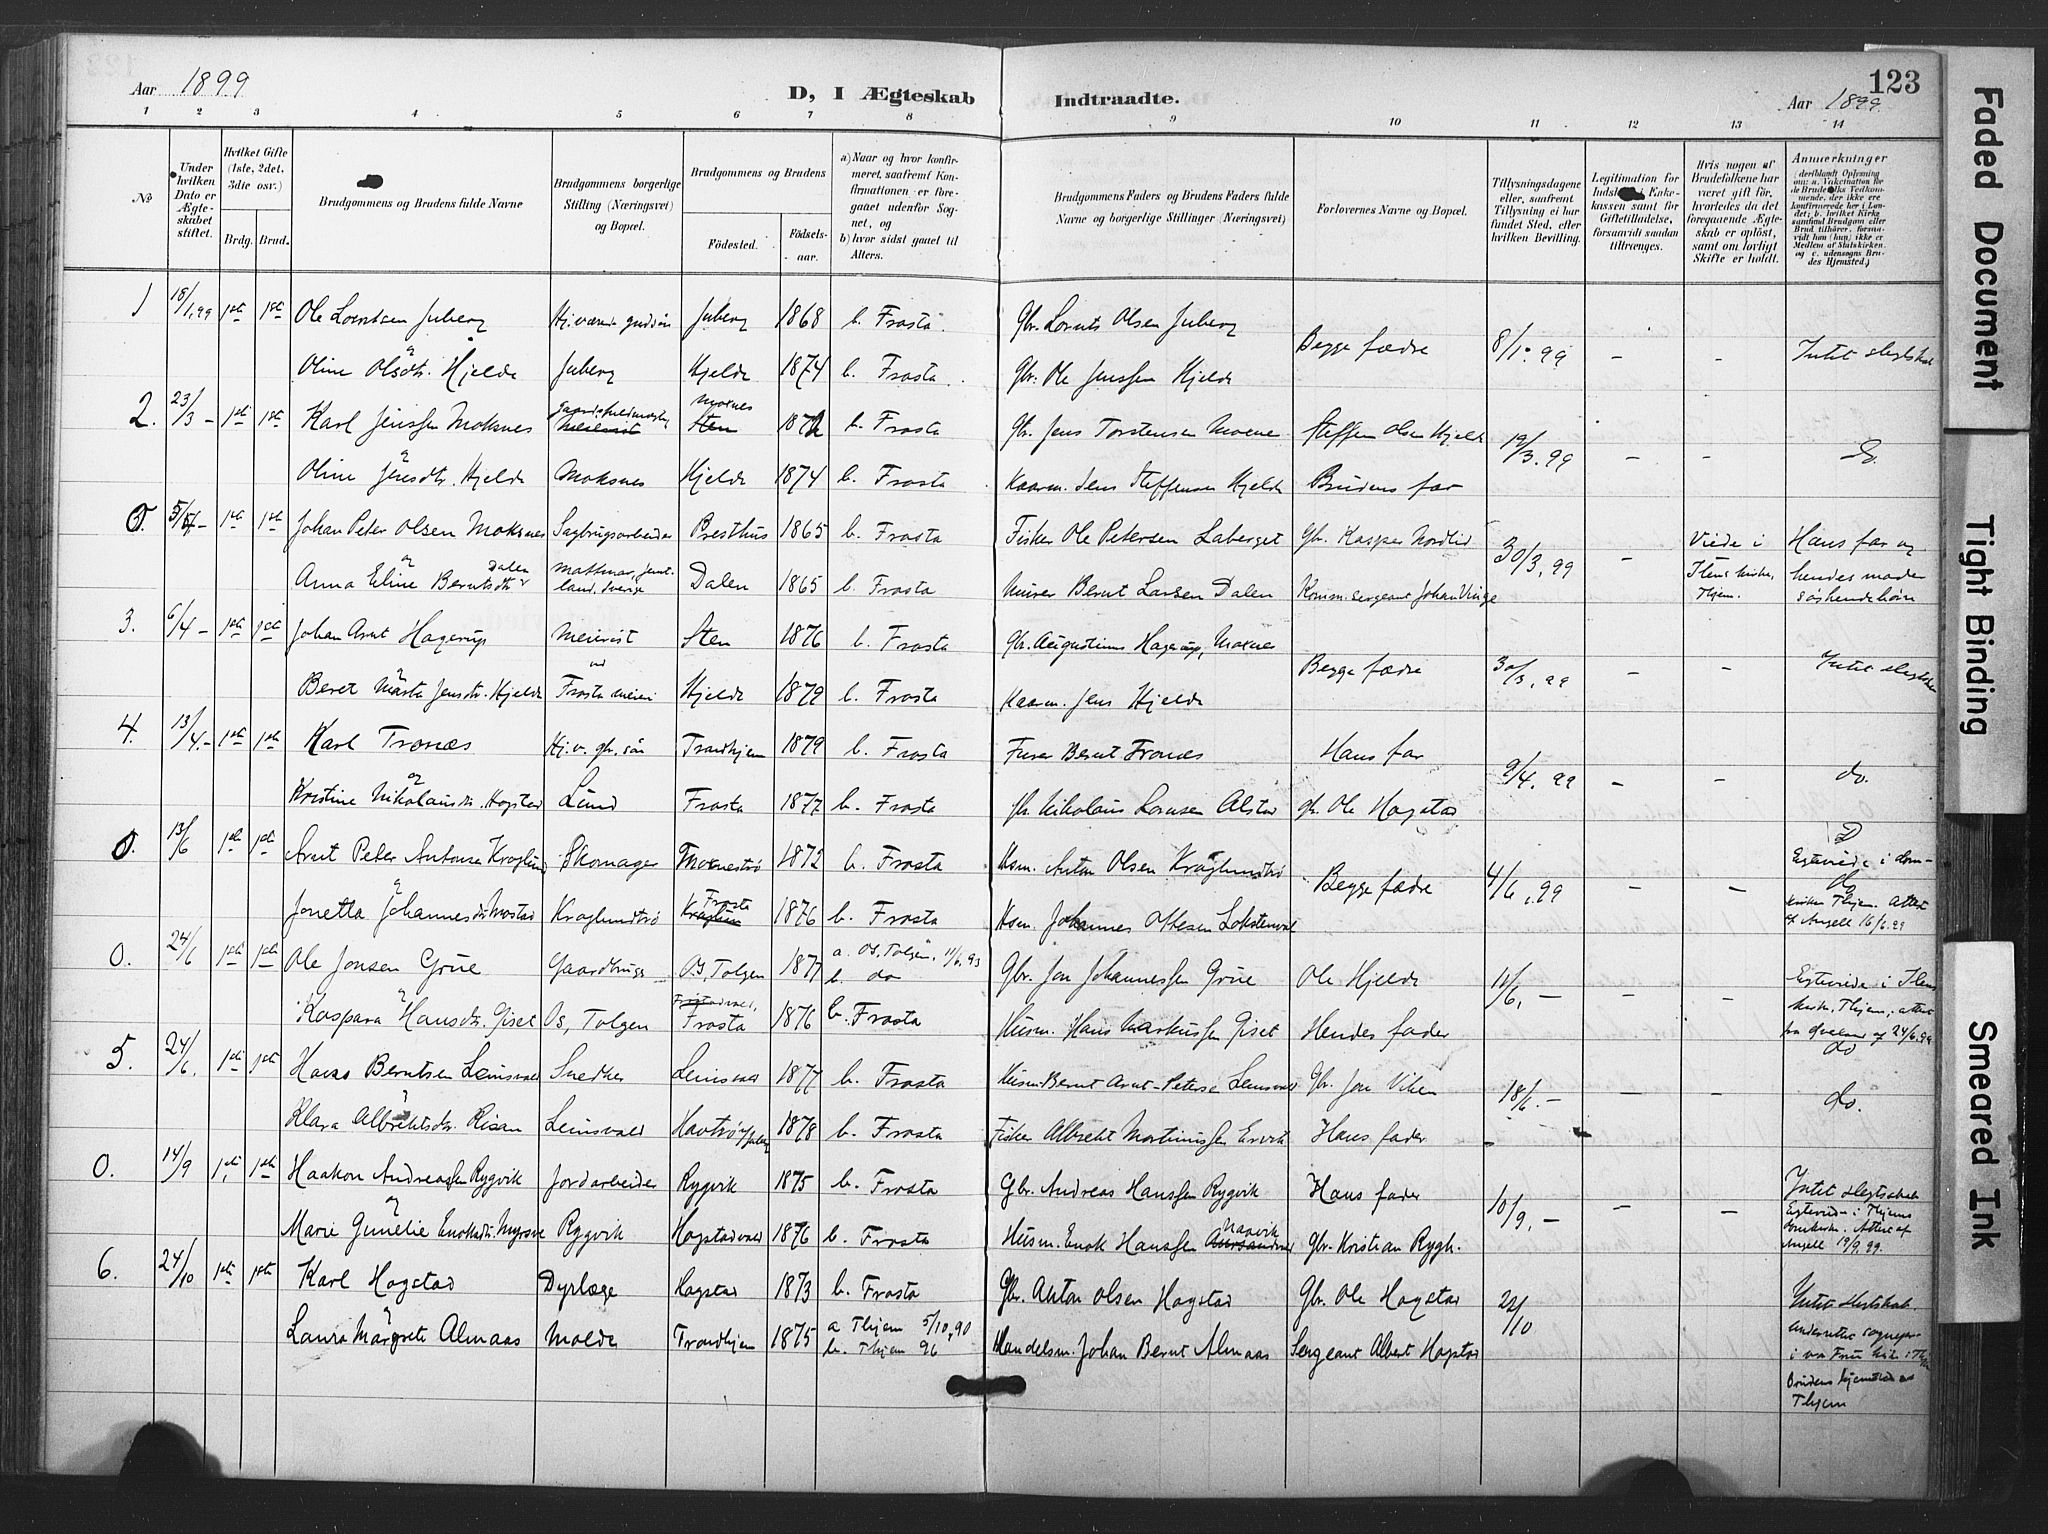 123
Aar 1899
D, I Ægteskab Indtraadte.
Aar 1899
1 2 3 4 5 6 7 8 9 10 11 12 13 14
No
Under hvilken Dato er Ægteskabet stiftet.
Hvilket Gifte (1ste, 2det, 3die osv.)
Brdg. Brud.
Brudgommens og Brudens fulde Navne
Brudgommens borgerlige Stilling (Næringsvei) og Bopæl.
Brudgommens og Brudens
Fødested. Fødselsaar.
a) Naar og hvor konfirmeret, saafremt Konfirmationen er foregaaet udenfor Sognet, og
b) hvor sidst gaaet til Alters.
Brudgommens Faders og Brudens Faders fulde Navne og borgerlige Stillinger (Næringsvei)
Forlovernes Navne og Bopæl.
Tillysningsdagene eller, saafremt Tillysning ei har fundet Sted, efter hvilken Bevilling.
Legitimation for Indskud i Enkekassen samt for Giftetilladelse, forsaavidt saadan tiltrænges.
Hvis nogen af Brudefolkene har været gift før, hvorledes da det foregaaende Ægteskab er opløst, samt om lovligt Skifte er holdt.
Anmerkninger (deriblandt Oplysning om: a. Vaccination for de Brudefolks Vedkommende, der ikke ere konfirmerede her i Landet; b. hvilket Kirkesamfund Brudgom eller Brud tilhører, forsaavidt han (hun) ikke er Medlem af Statskirken, og c. udensogns Brudes Hjemsted.)
1 18/1.99 1ste 1ste Ole Lorntsen Juberg Hjv. Juberg 1868 b. Frosta. Gbr. Lornts Olsen Juberg
Begge fædre 8/1. 99 – – Intet slegtskab
og
Oline Olsdtr. Hjelde Juberg Hjelde 1874 b. Frosta. Gbr. Ole Jenssen Hjelde
2. 23/3 – 1ste 1ste Karl Jenssen Moksnes Moksnes Sten 1872 b. Frosta Gbr. Jens Torstensen Steffen Olsen Hjelde
19/3. 99 – – do.
og
Oline Jensdtr. Hjelde Moksnes Hjelde 1874 b. Frosta Kaarm. Jens Steffensen Hjelde Brudens far
0. 5/4 – 1ste 1ste Johan Peter Olsen Moksnes Sagbrugsarbeider Presthus 1865 b. Frosta Fisker Ole Petersen Laberget Gbr. Kasper Nordlid
30/3, 99 – Viede i Ilens kirke, Thjem. Hans far og hendes moder søskendebørn
og
Anna Eline Berntsdtr Dalen Mattmar, Jemtland, Sverige Dalen 1865 b. Frosta Murer Bernt Larsen Dalen Korn.sergeant Johan Vinge
3. 6/4 – 1ste 1ste Johan Arnt Hagerup Meierist Sten 1876 b. Frosta Gbr. Augustinus Hagerup, Moxnes
Begge fædre 30/3, 99 – – Intet slegtskab
og
Beret Marta Jensdtr. Hjelde ved Frosta meieri Hjelde 1879 b. Frosta Kaarm. Jens Hjelde
4. 13/4. – 1ste 1ste Karl Tronæs Hj.v. gbr. søn Trondhjem 1879 b. Frosta Furer Bernt Tronæs Hans far
9/4. 99 – – do.
og
Kristine Nikolausdtr. Hogstad Lund Frosta 1877 b. Frosta Gbr. Nikolaus Lornsen Alstad gbr. Ole Hogstad
0. 13/6 1ste 1ste Arnt Peter Antonsen Kroglund Skomager 1872 b. Frosta Husm. Anton Olsen Kroglundtrø
Begge fædre 4/6, 99 – – do Egteviede i Domkirken Thjem. Attest af Angell 16/6.99
og
Jonetta Johannesdtr. Mostad Kroglundtrø Frosta 1876 b. Frosta Husm. Johannes Ottesen
0. 24/6 1ste 1ste Ole Jonsen Grue Gaardbruger Os, Tolgen 1877 a. Os, Tolgen, 11/6. 93 b. do Gbr. Jon Johannessen Grue Ole Hjelde
11/6, – – – Egteviede i Ilens kirke Thjem, attest fra af 24/6.99 do
og
Kaspara Hansdtr. Giset Os, Tolgen Frosta 1876 b. Frosta Husm. Hans Markussen Giset Hendes fader
5. 24/6. 1ste 1ste Hans Berntsen Leinsvald Snedker Leinsvald 1877 b. Frosta Husm. Bernt Arnt-Petersen Leinsvald Gbr. Jon Viken
18/6. – – – do.
og
Klara Albrektsdtr. Risan Leinsvald 1878 b. Frosta Fisker Albrekt Mortinussen Ervik Hans fader
0. 14/9 1ste 1ste Haakon Andreassen Rygvik Jordarbeider Rygvik 1875 b. Frosta Gbr. Andreas Hanssen Rygvik Hans fader
10/9, – – – Intet slegtskab Egteviede i Thjems domkirke. Attest af Angell 19/9. 99.
og
Marie Gunelie Enoksdtr. Rygvik Hogstadvald 1876 b. Frosta Husm. Enok Hanssen Naavik Gbr. Kristian Rygh.
6. 24/10 1ste 1ste Karl Hogstad Dyrlæge Hogstad 1873 b. Frosta Gbr. Anton Olsen Hogstad Gbr. Ole Hogstad
22/10 Intet slegtskab.
og
Laura Margrete Almaas Molde Trondhjem 1875 a Thjem 5/10, 90 b. Thjem 96 Handelsm. Johan Bernt Almaas Sergeant Albert Hogstad
i vor Frue kirke i Thjem Brudens hjemsted er Thjem
Faded Document
Tight Binding
Smeared Ink